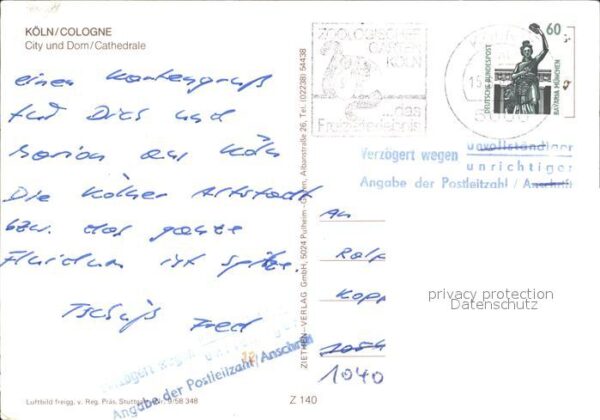 KÖLN/COLOGNE
City und Dom/Cathedrale
einen Kartengruß
für Dich und
Marion aus Köln
Die Kölner Altstadt
bzw. das ganze
Fluidum ist spitze.
Tschüß
Fred
Verzögert wegen
Angabe der Postleitzahl/Anschrift
Luftbild freigg. v. Reg. Präs. Stuttgart 9/58 348
ZIETHEN-VERLAG GmbH, 5024 Pulheim- Albanstraße 26, Tel. (02238) 54438
Z 140
ZOOLOGISCHER
GARTEN
KÖLN
...das
Freizeiterlebnis
60
DEUTSCHE BUNDESPOST
BAVARIA MÜNCHEN
Verzögert wegen unvollständiger
unrichtiger
Angabe der Postleitzahl / Anschrift
An
Ralf
Kopp
privacy protection
Datenschutz
1040